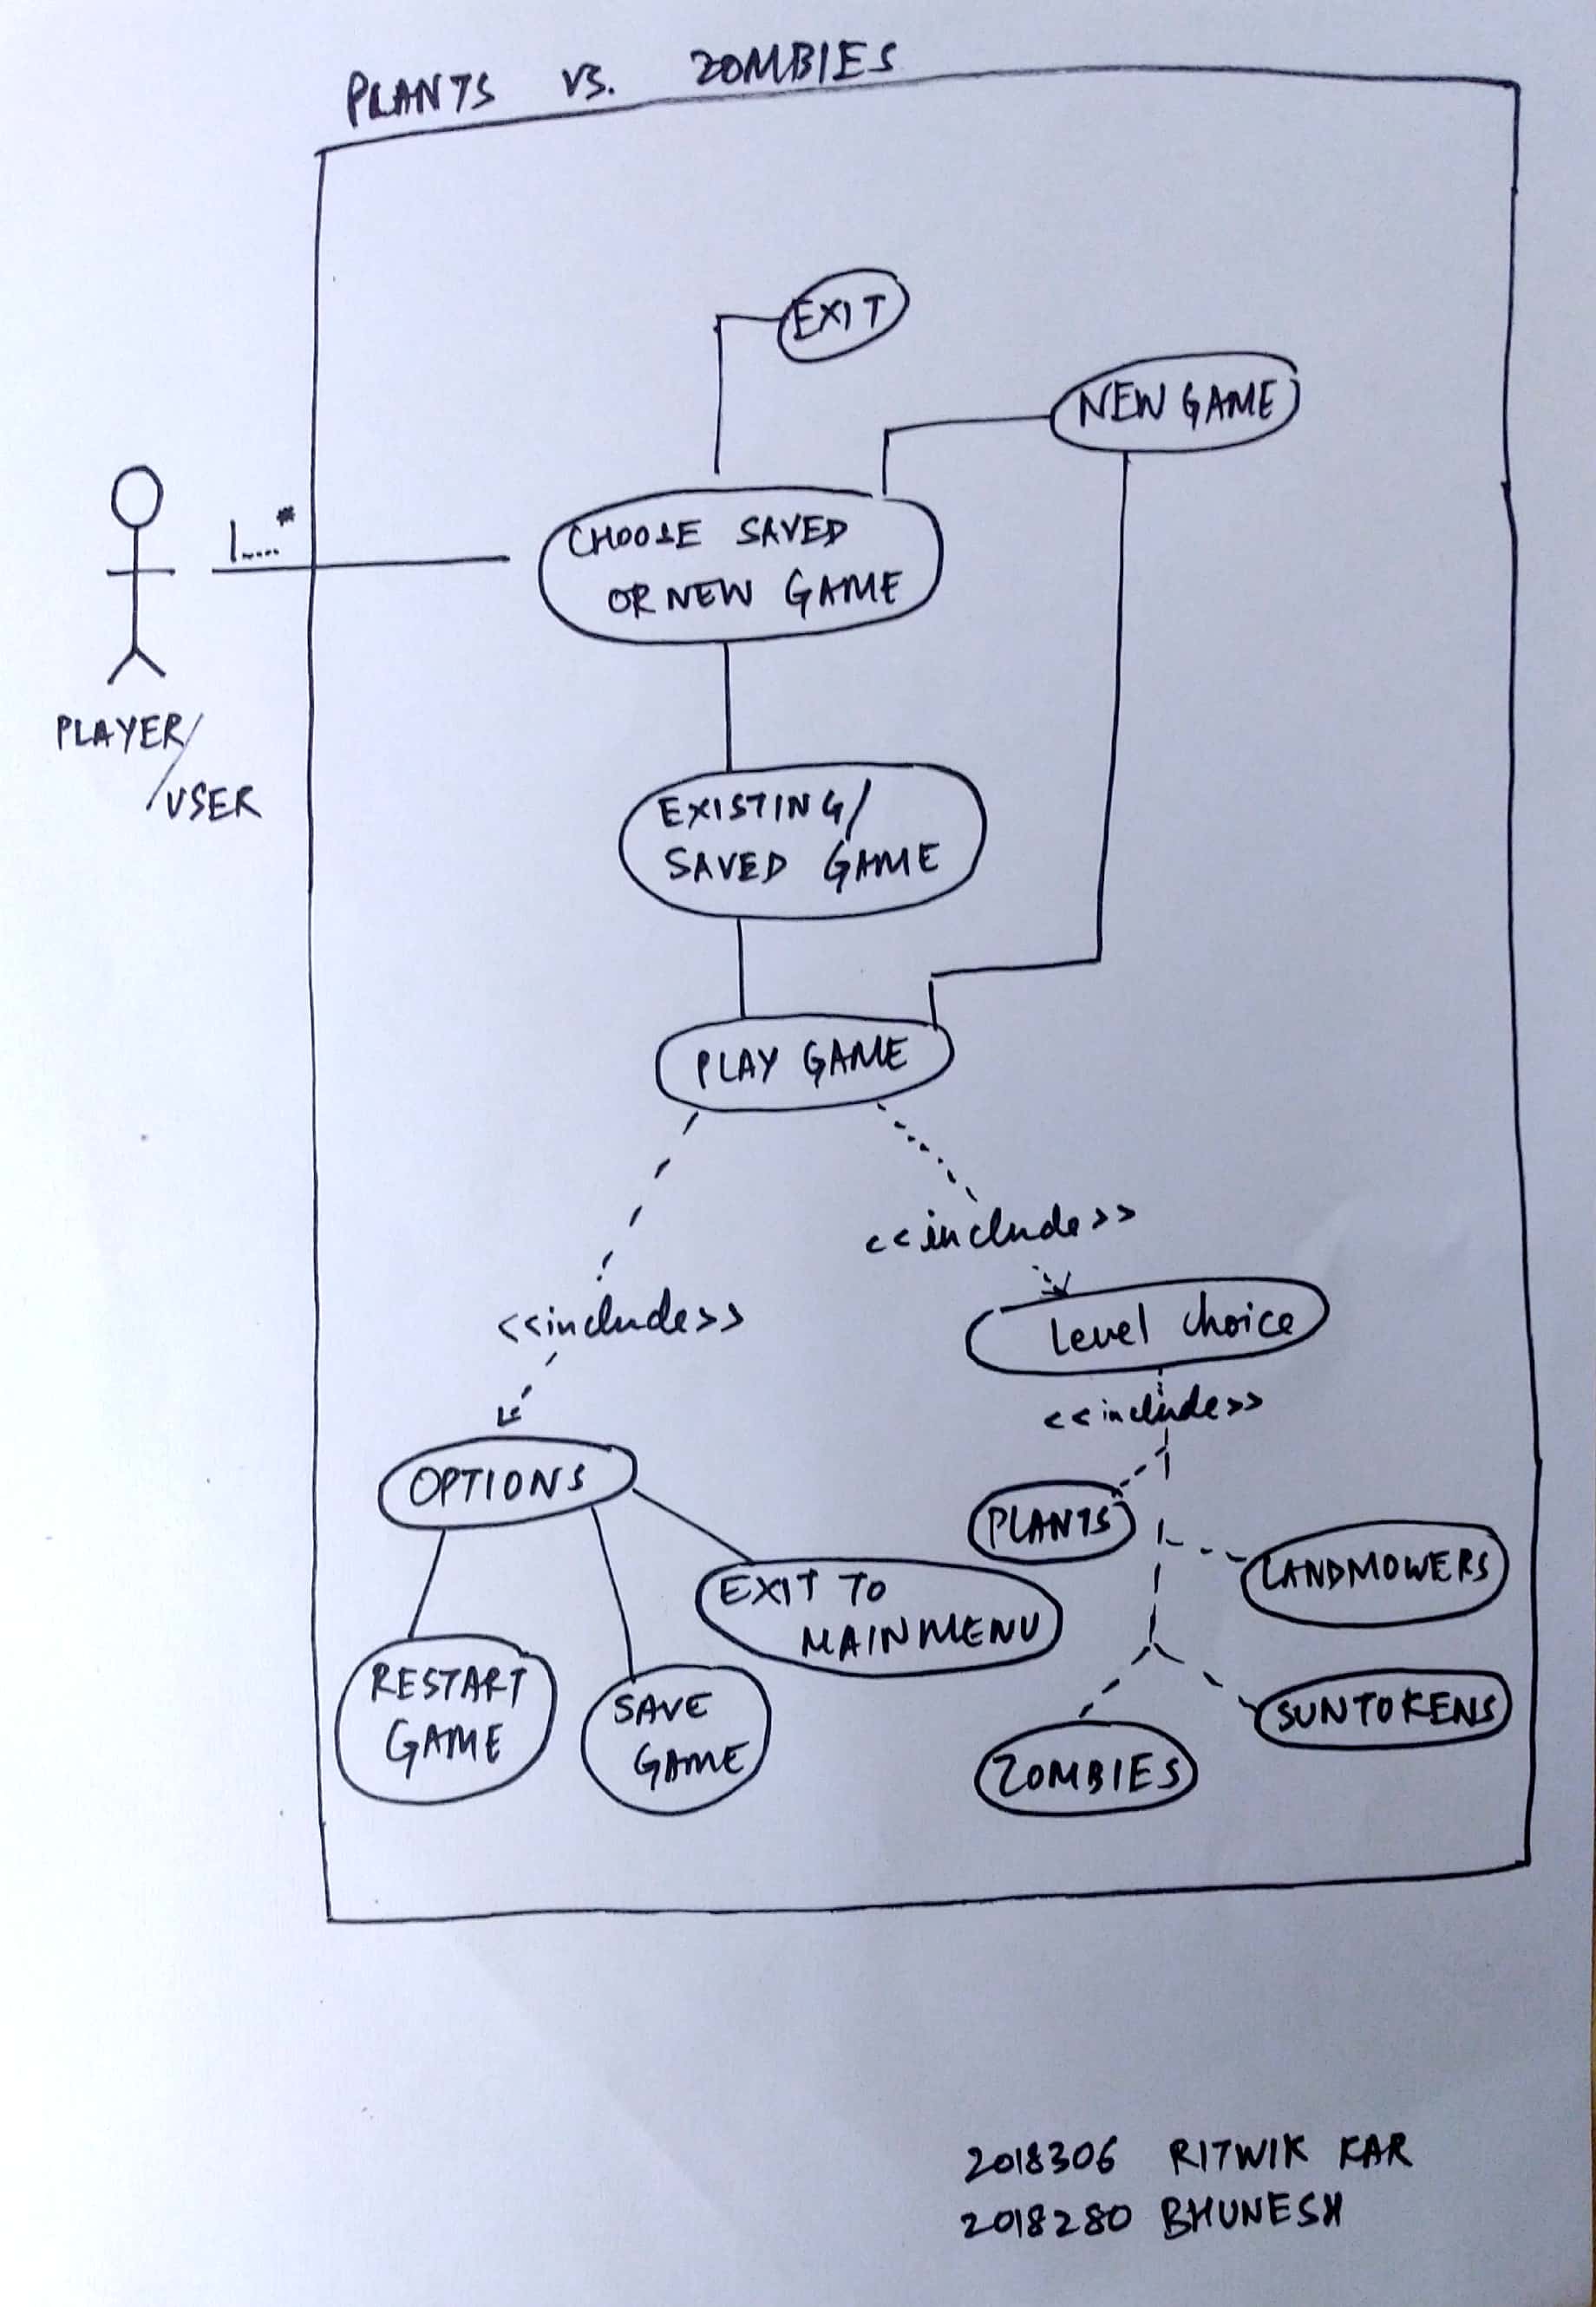 PLANTS VS. ZOMBIES
EXIT
NEW GAME
1....*
CHOOSE SAVED
OR NEW GAME
PLAYER/
/USER
EXISTING/
SAVED GAME
PLAY GAME
<<include>>
<<include>>
Level choice
<<include>>
OPTIONS
PLANTS
LANDMOWERS
EXIT TO
MAINMENU
RESTART
GAME
SAVE
GAME
SUNTOKENS
ZOMBIES
2018306 RITWIK KAR
2018280 BHUNESH